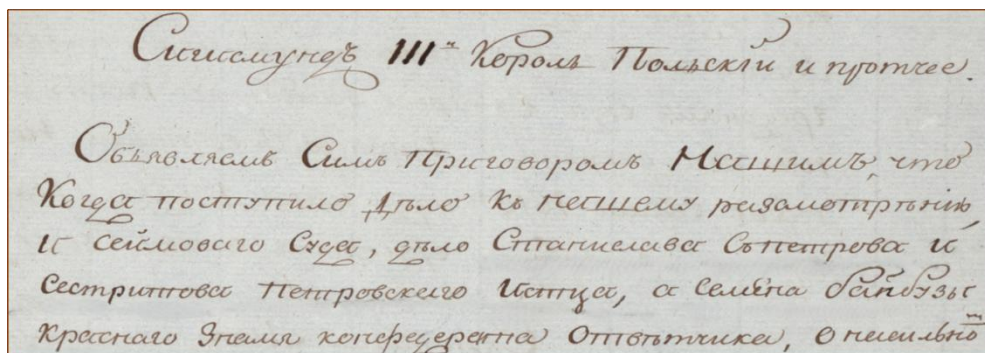 Сигизмундъ III й Король Польскiй и протчее.
Объявляемъ Симъ Приговоромъ Нашимъ, что
Когда поступило Дѣло къ нашему разсмотрѣнию,
и сеймоваго Суда, дѣло Станислава Съпетрова и
Сестритова Петровскаго Истца, а Семена байбузы
Краснаго Знамя конфедерата Отвѣтчика, о насильно